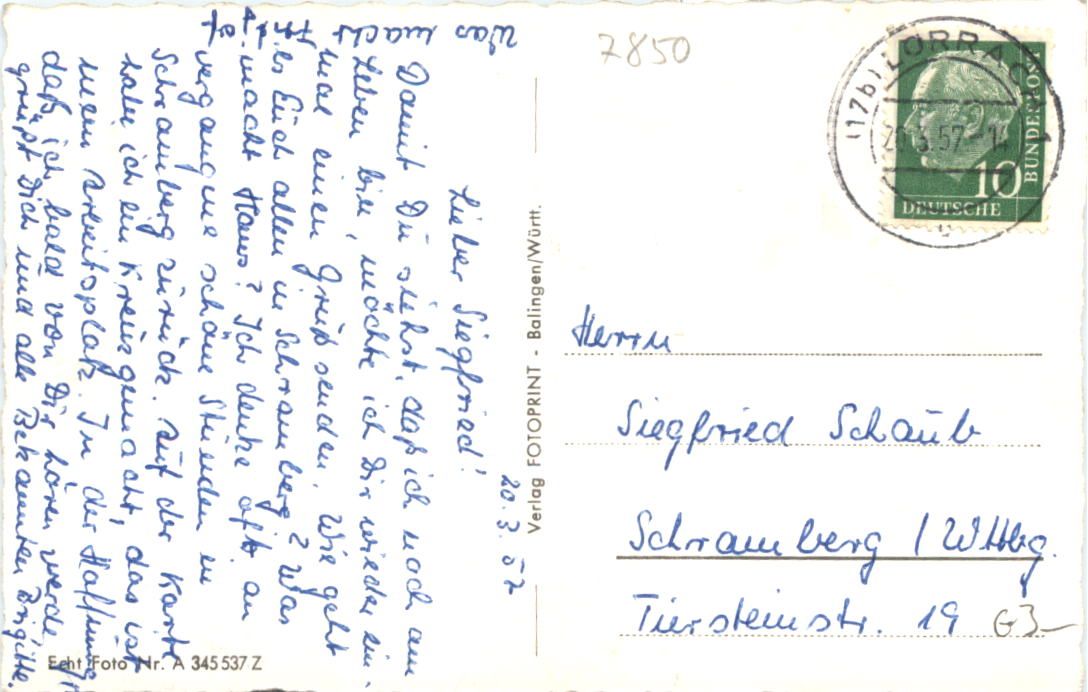 20.3.57
Lieber Siegfried!
Damit Du siehst, daß ich noch am
Leben bin, möchte ich Dir wieder ein-
mal einen Gruß senden. Wie geht
es Euch allen in Schramberg? Was
macht Hans? Ich denke oft an
vergangne schöne Stunden in
Schramberg zurück. Auf der Karte
habe ich ein Kreuz gemacht, das ist
mein Arbeitsplatz. In der Hoffnung,
daß ich bald von Dir hören werde
grüßt Dich und alle Bekannten Brigitte.
was macht
Echt Foto Nr. A 345537 Z
Verlag FOTOPRINT - Balingen/Württ.
7850
(17b) LÖRRACH 1
20.3.57-14
10
BUNDESPOST
DEUTSCHE
Herrn
Siegfried Schaub
Schramberg / Wttbg.
Tiersteinstr. 19